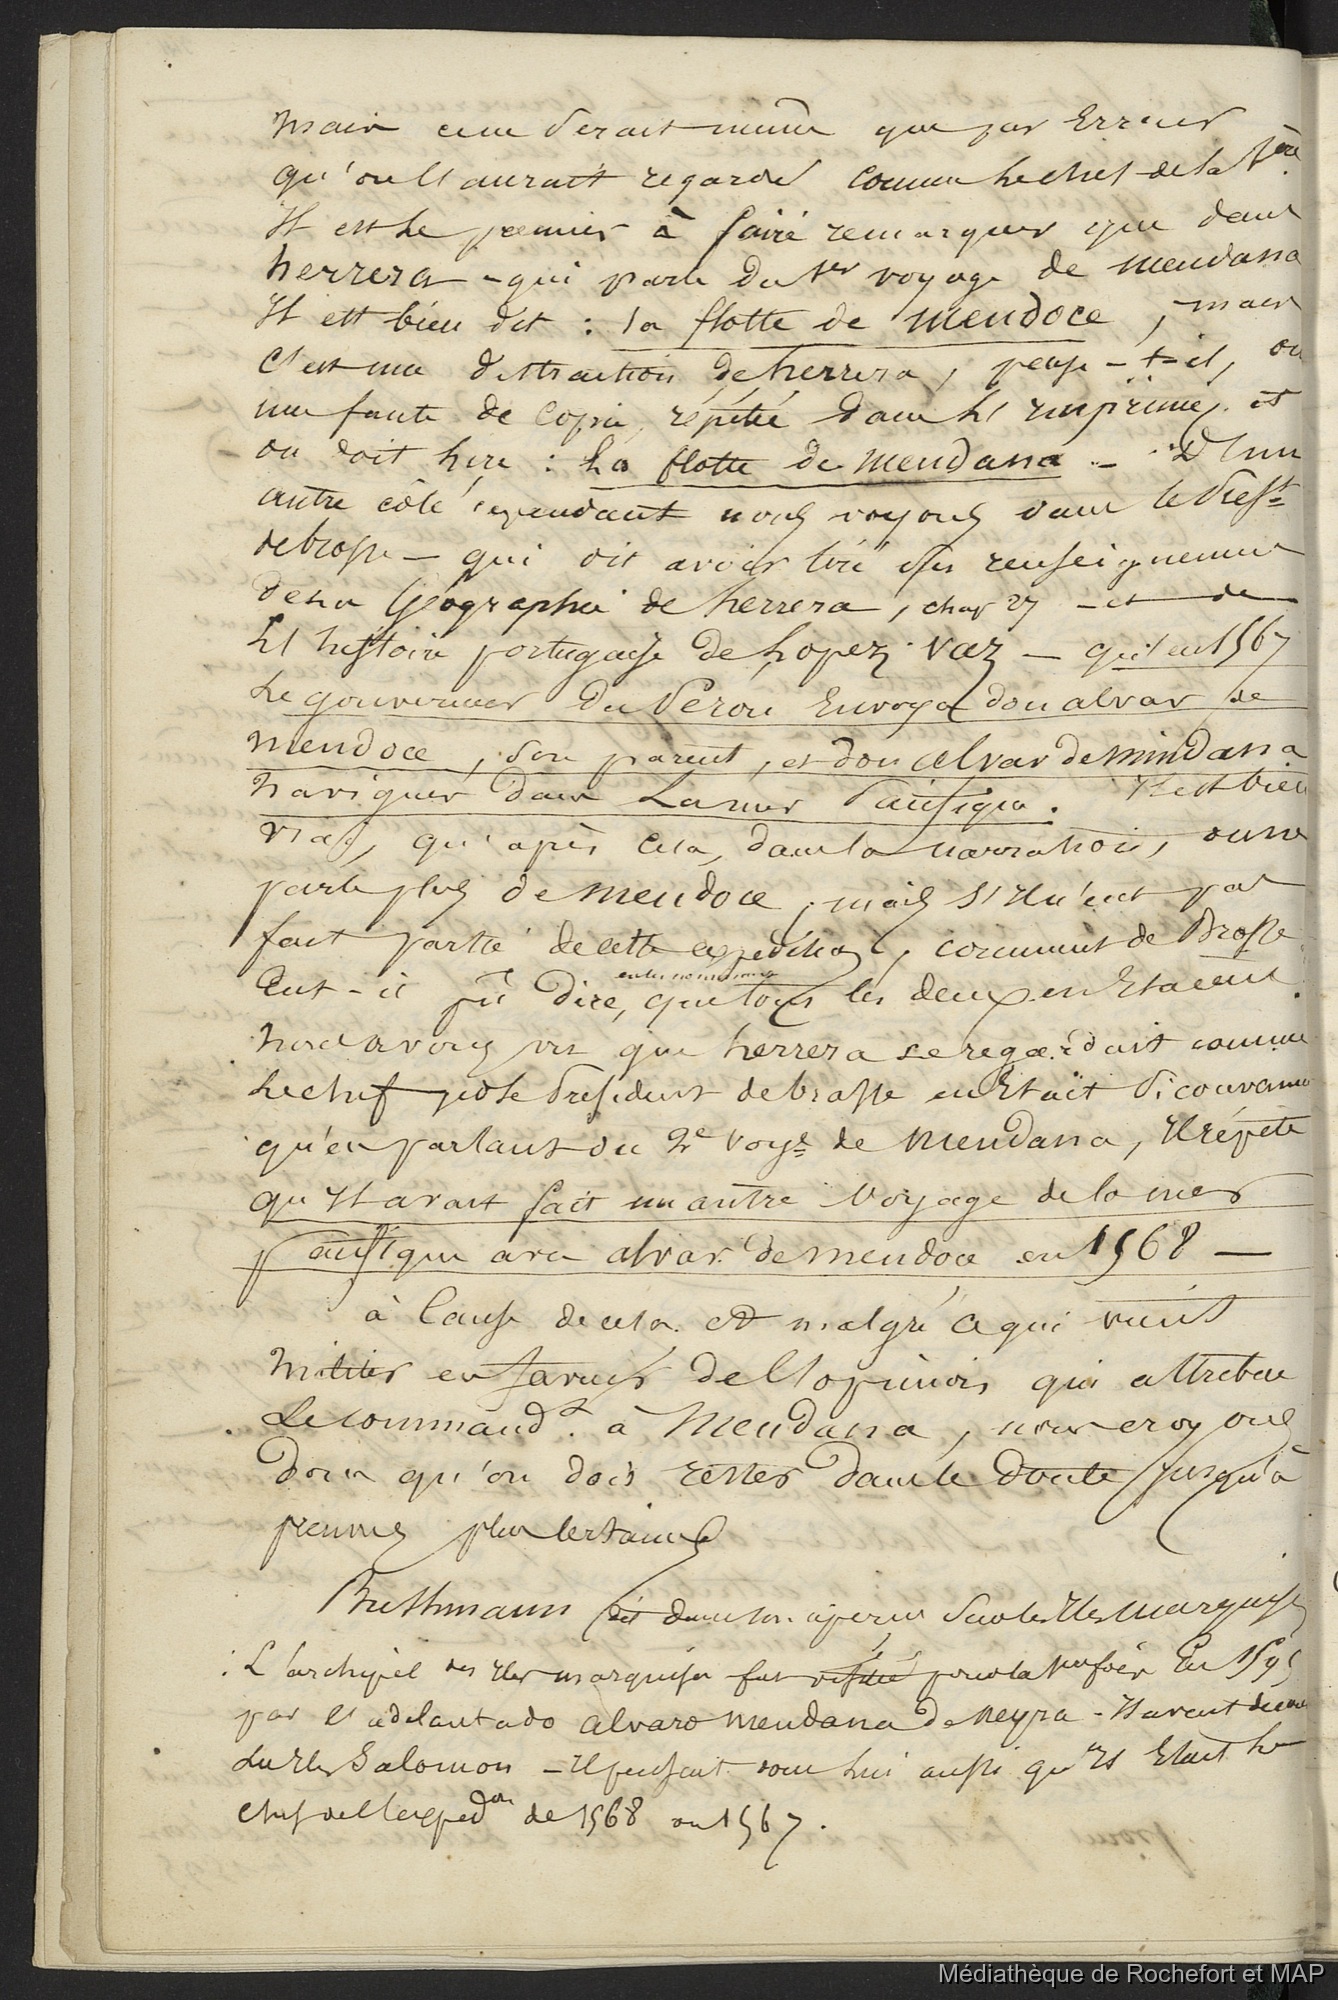 mais ce ne serait même que par Erreur
qu'on l'aurait regardé comme le chef de la 1ère.
Il est le premier à faire remarquer que dans
herrera - qui parle du 1er voyage de mendana
Il est bien dit : la flotte de Mendoce, mais
c'est une distraction de herrera, pense-t-il, ou
une faute de copie, répétée dans les imprimés. et
on doit lire : la flotte de Mendana - D'un
autre côté cependant nous voyons dans le Presdt
debrosse - qui dit avoir tiré ses renseignemens
de la Géographie de herrera, chap 27 - et de
l'histoire portugaise de Lopez Vaz - qu'en 1567
le gouverneur du Pérou Envoya don alvar de
mendoce, son parent, et don alvar de mindana
naviguer dans La mer Pacifique. Il est bien
vrai, qu'après cela, dans la narration, on ne
parle plus de mendoce, mais s'il n'eut pas
fait partie de cette expédition, comment de Brosse
Eut-il pû dire, que tous les deux en Etaient.
Nous avons vu que herrera le regardait comme
le chef que le Président de brosse en Etait si convaincu
qu'en parlant du 2e voyge de Mendana, Il répète
qu'Il avait fait un autre voyage de la mer
pacifique avec alvar de mendoce en 1568 —
à Cause de cela et malgré ce qui vient
militer en faveur de l'opinion qui attribue
Le commandt. à Mendana, nous croyons
donc qu'on doit rester dans le doute jusqu'à
preuves plus certaines
Buthmann dit dans son aperçu sur les Iles marquises
: L'archipel des Iles marquises fut visité pour la 1ere fois En 1595
par l'adelantado alvaro Mendana de Neyra - Il avait decouv
Les Iles Salomon - Il pensait donc lui aussi qu'Il Etait le
chef de l'expedon de 1568 ou 1567.
Médiathèque de Rochefort et MAP